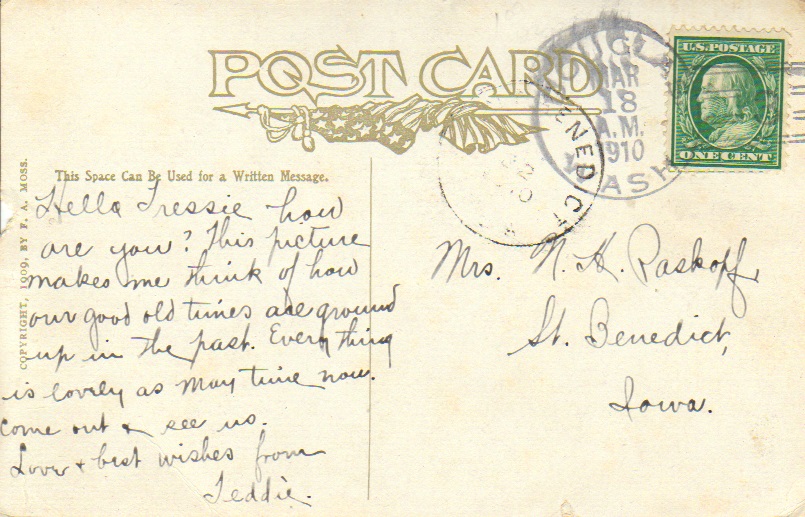 POST CARD
U.S. POSTAGE
ONE CENT
MAR
18
A.M.
1910
WASH
BENEDICT
COPYRIGHT, 1909, BY F. A. MOSS.
This Space Can Be Used for a Written Message.
Hello Tressie how
are you? This picture
makes me think of how
our good old times are ground
up in the past. Every thing
is lovely as May time now.
come out & see us.
Love & best wishes from
Teddie.
Mrs. N. H. Raskopf,
St. Benedict,
Iowa.